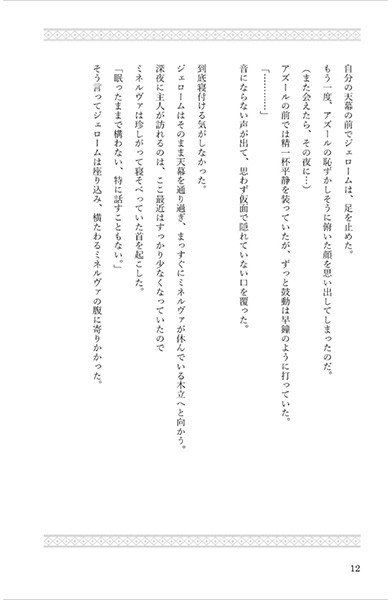 自分の天幕の前でジェロームは、足を止めた。
もう一度、アズールの恥ずかしそうに俯いた顔を思い出してしまったのだ。
(また会えたら、その夜に…)
アズールの前では精一杯平静を装っていたが、ずっと鼓動は早鐘のように打っていた。
「…………」
音にならない声が出て、思わず仮面で隠れていない口を覆った。
到底寝付ける気がしなかった。
ジェロームはそのまま天幕を通り過ぎ、まっすぐにミネルヴァが休んでいる木立へと向かう。
深夜に主人が訪れるのは、ここ最近はすっかり少なくなっていたので
ミネルヴァは珍しがって寝そべっていた首を起こした。
「眠ったままで構わない、特に話すこともない。」
そう言ってジェロームは座り込み、横たわるミネルヴァの腹に寄りかかった。
12